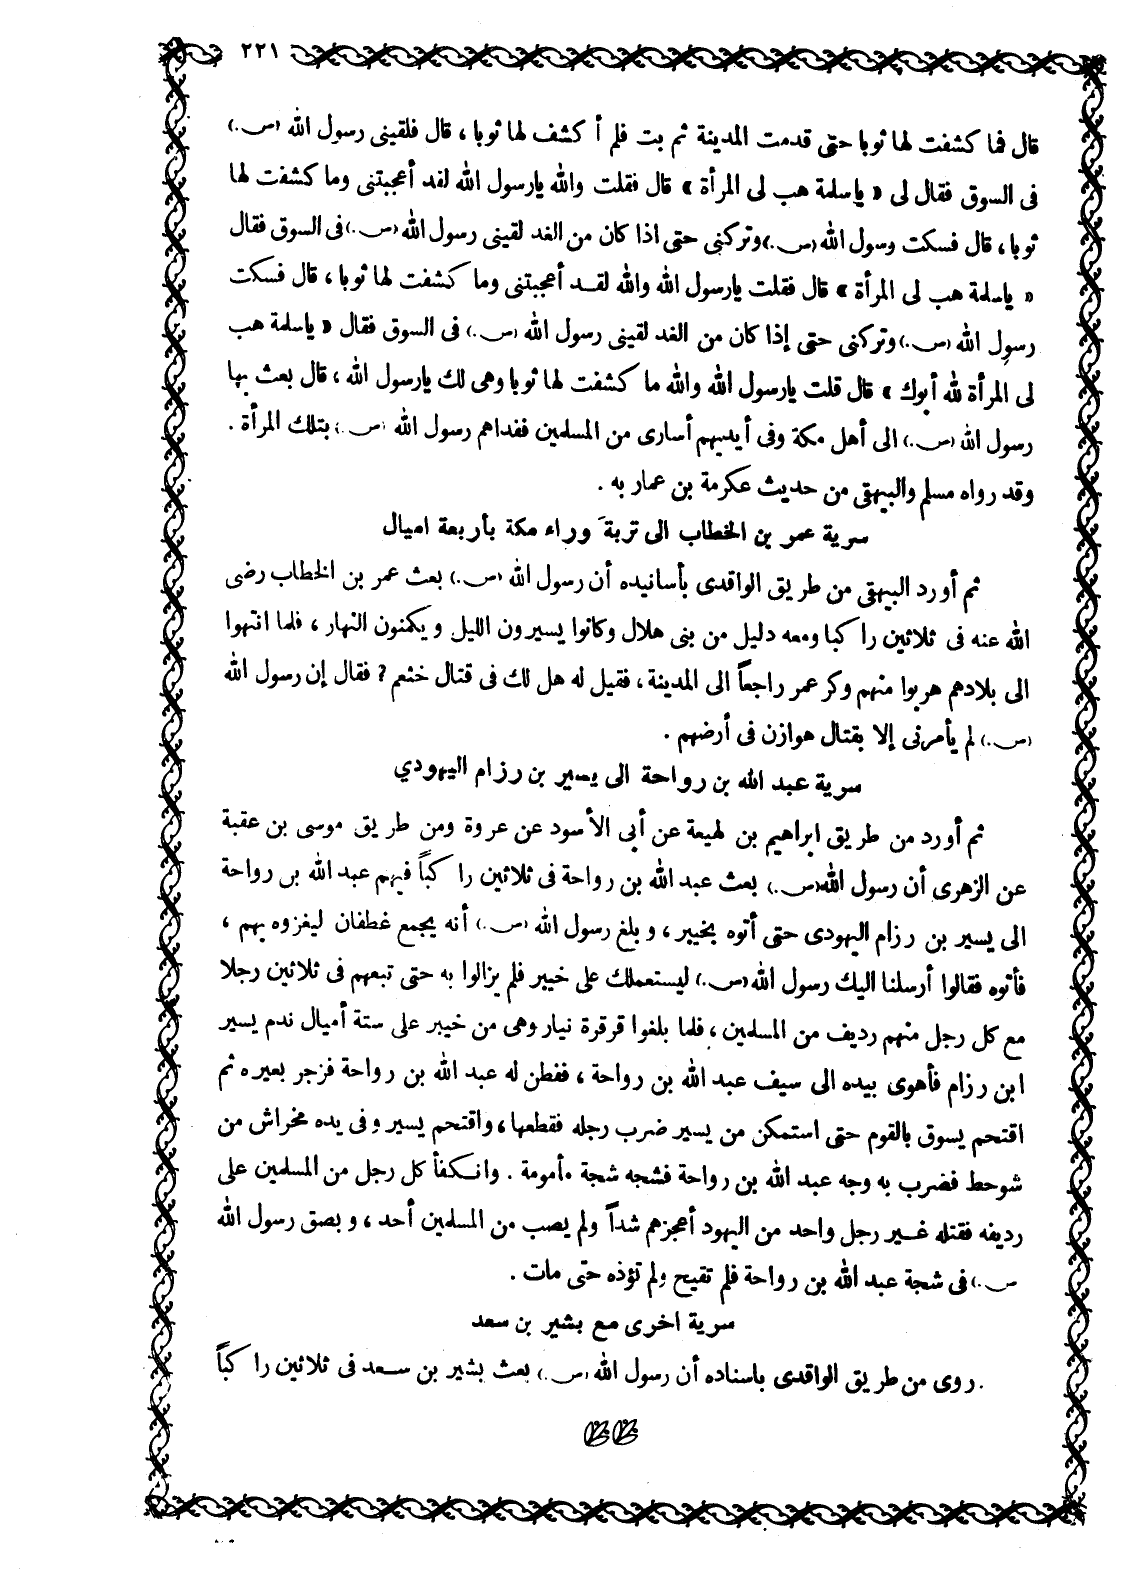 ٢٢١
قال فما كشفت لها ثوبا حتى قدمت المدينة ثم بت فلم أ كشف لها ثوبا ، قال فلقينى رسول الله (ص.)
فى السوق فقال لى « ياسلمة هب لى المرأة » قال فقلت والله يارسول الله لقد أعجبتنى وما كشفت لها
ثوبا ، قال فسكت رسول الله (ص.) وتركنى حتى اذا كان من الغد لقينى رسول الله (ص.) فى السوق فقال
« ياسلمة هب لى المرأة » قال فقلت يارسول الله والله لقد أعجبتنى وما كشفت لها ثوبا ، قال فسكت
رسول الله (ص.) وتركنى حتى إذا كان من الغد لقينى رسول الله (ص.) فى السوق فقال « ياسلمة هب
لى المرأة لله أبوك » قال قلت يارسول الله والله ما كشفت لها ثوبا وهى لك يارسول الله ، قال بعث بها
رسول الله (ص.) الى أهل مكة وفى أيديهم أسارى من المسلمين ففداهم رسول الله (ص.) بتلك المرأة .
وقد رواه مسلم والبيهقى من حديث عكرمة بن عمار به .
سرية عمر بن الخطاب الى تربةَ وراء مكة بأربعة اميال
ثم أورد البيهقى من طريق الواقدى بأسانيده أن رسول الله (ص.) بعث عمر بن الخطاب رضى
الله عنه فى ثلاثين را كبا ومعه دليل من بنى هلال وكانوا يسيرون الليل ويكمنون النهار ، فلما انتهوا
الى بلادهم هربوا منهم وكر عمر راجعاً الى المدينة ، فقيل له هل لك فى قتال خثعم ؟ فقال إن رسول الله
(ص.) لم يأمرنى إلا بقتال هوازن فى أرضهم .
سرية عبد الله بن رواحة الى يسير بن رزام اليهودي
ثم أورد من طريق ابراهيم بن لهيعة عن أبى الأسود عن عروة ومن طريق موسى بن عقبة
عن الزهرى أن رسول الله (ص.) بعث عبد الله بن رواحة فى ثلاثين را كباً فيهم عبد الله بن رواحة
الى يسير بن رزام اليهودى حتى أتوه بخيبر ، وبلغ رسول الله (ص.) أنه يجمع غطفان ليغزوه بهم ،
فأتوه فقالوا أرسلنا اليك رسول الله (ص.) ليستعملك على خيبر فلم يزالوا به حتى تبعهم فى ثلاثين رجلا
مع كل رجل منهم رديف من المسلمين ، فلما بلغوا قرقرة نيار وهى من خيبر على ستة أميال ندم يسير
ابن رزام فأهوى بيده الى سيف عبد الله بن رواحة ، ففطن له عبد الله بن رواحة فزجر بعيره ثم
اقتحم يسوق بالقوم حتى استمكن من يسير ضرب رجله فقطعها ، واقتحم يسير وفى يده مخراش من
شوحط فضرب به وجه عبد الله بن رواحة فشجه شجة مأمومة . وانكفأ كل رجل من المسلمين على
رديفه فقتله غير رجل واحد من اليهود أعجزهم شداً ولم يصب من المسلمين أحد ، وبصق رسول الله
(ص.) فى شجة عبد الله بن رواحة فلم تقيح ولم تؤذه حتى مات .
سرية اخرى مع بشير بن سعد
روى من طريق الواقدى باسناده أن رسول الله (ص.) بعث بشير بن سعد فى ثلاثين را كباً